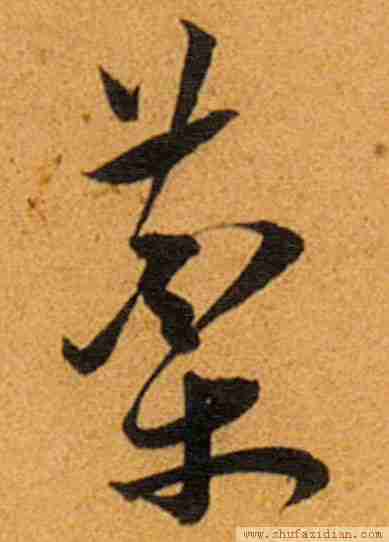 藁
www.shufazidian.com